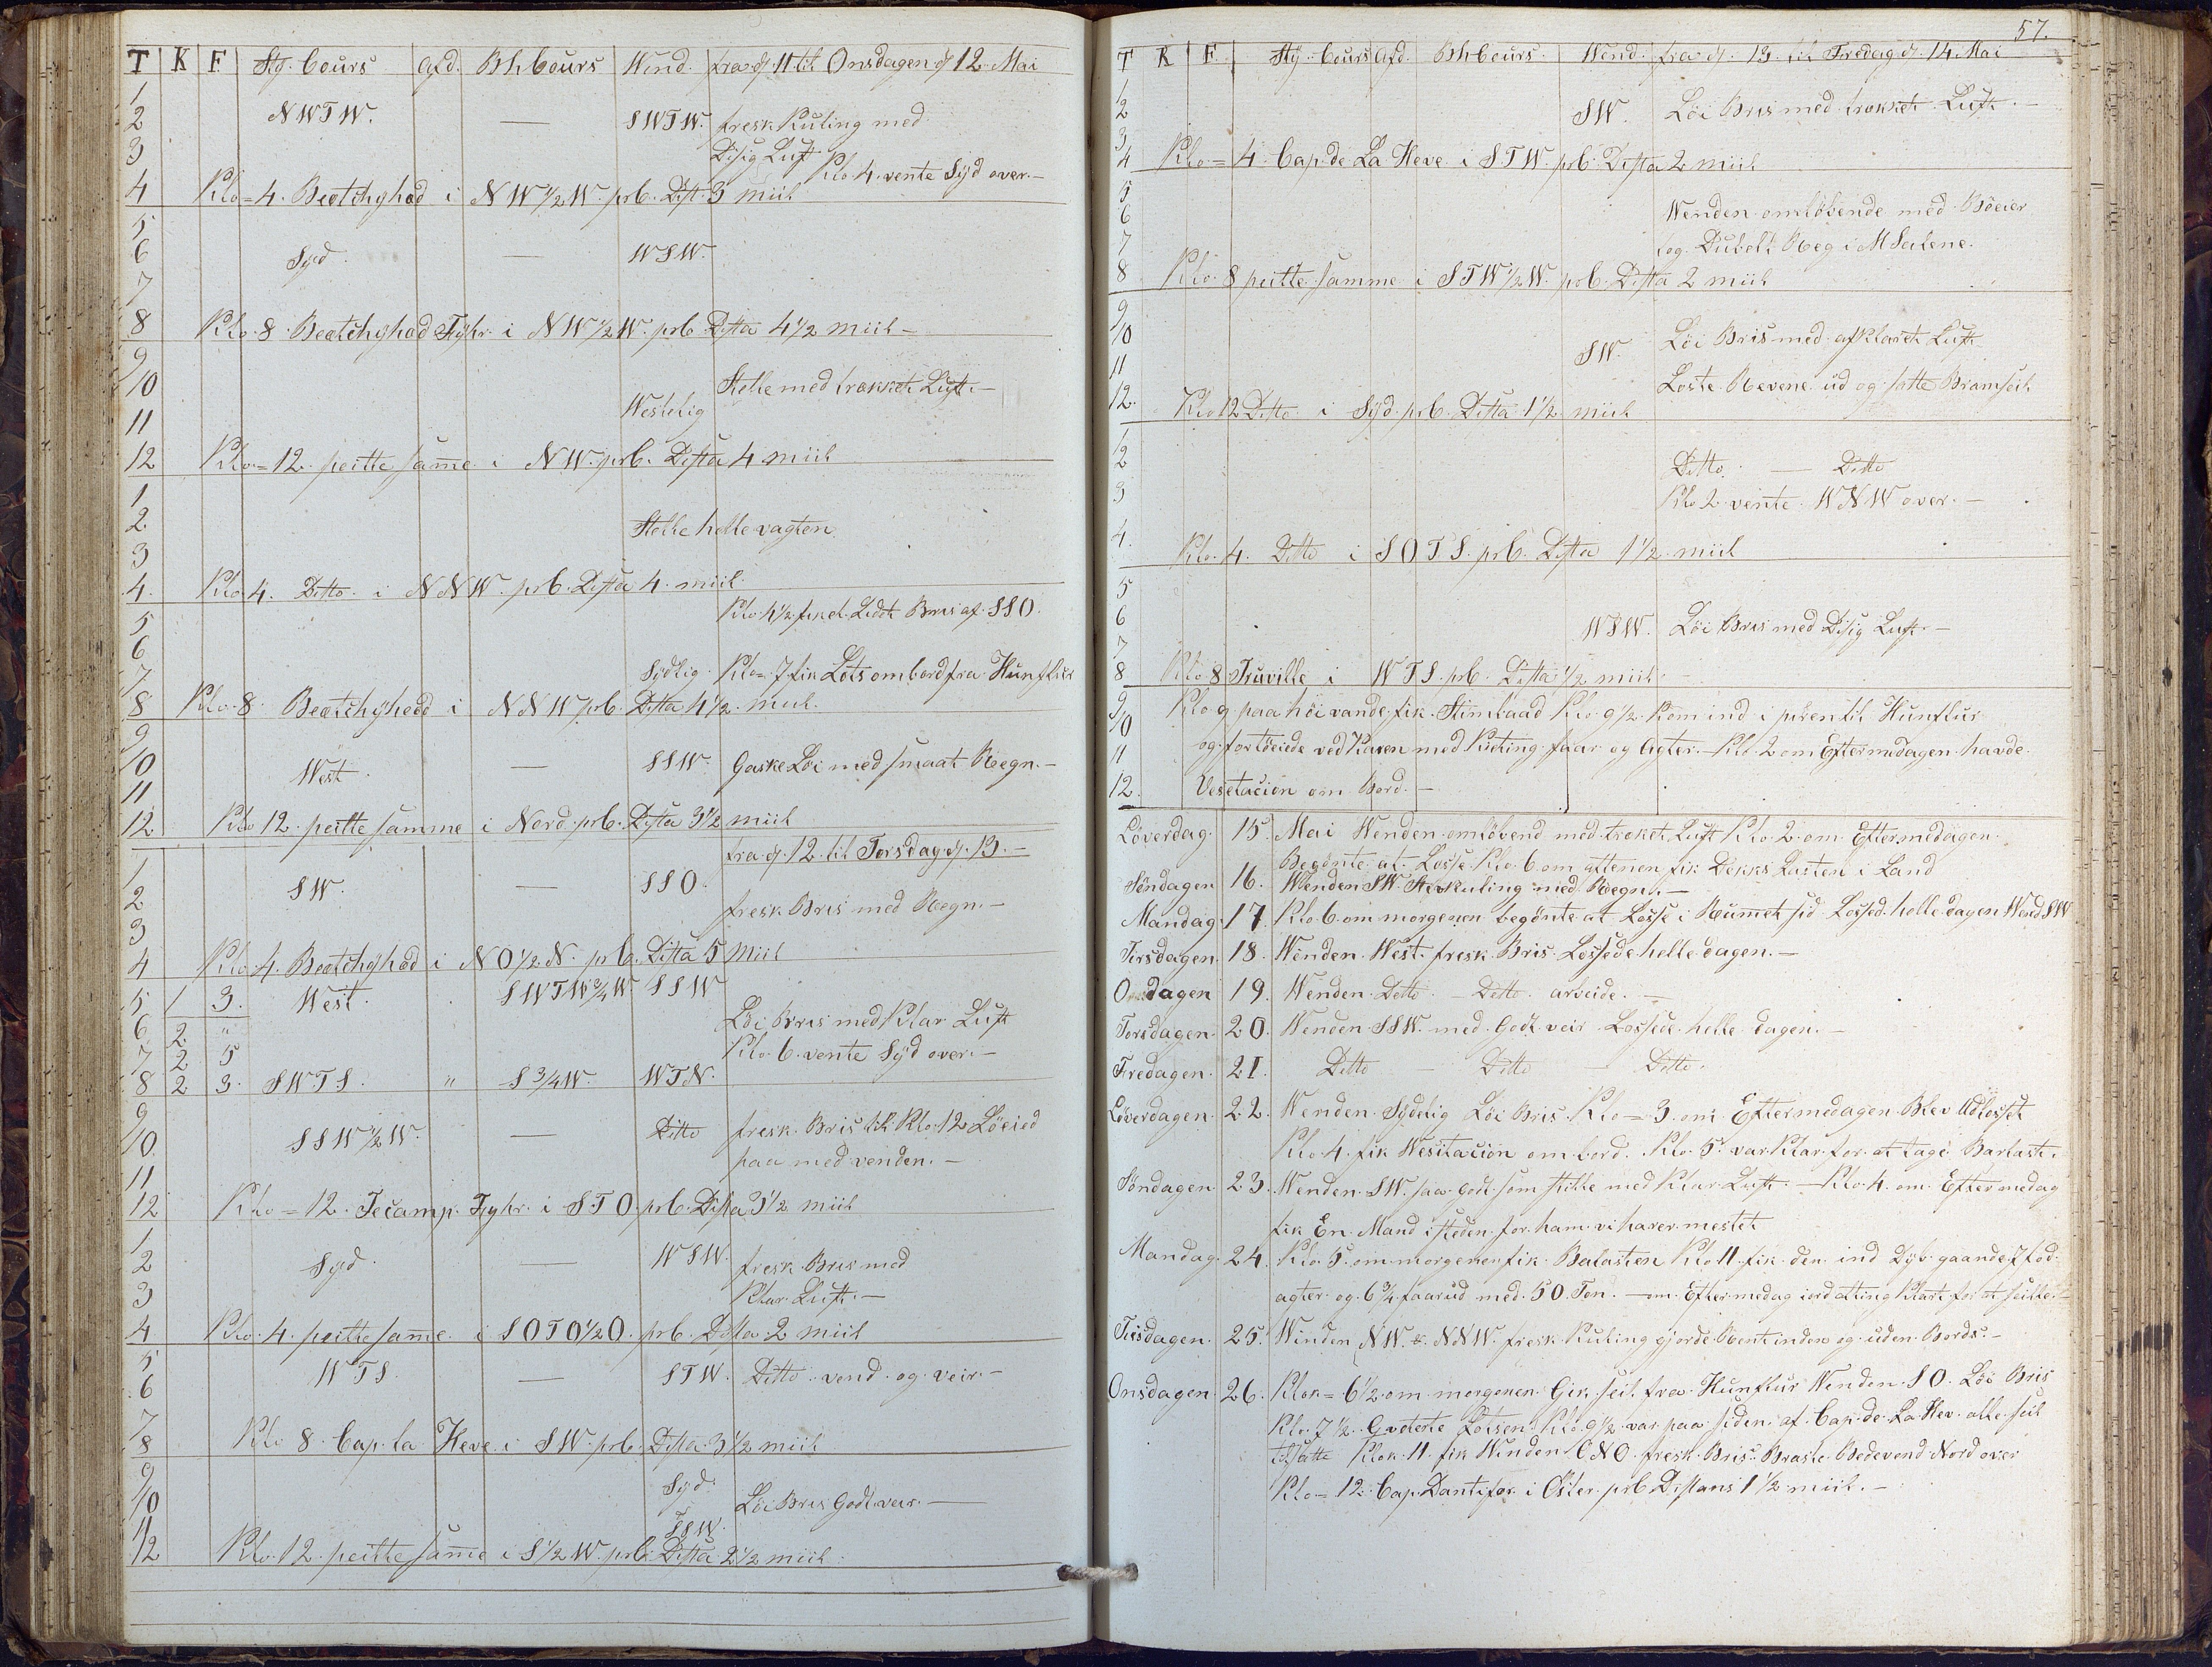 T K F Sty. Cours Afd. Bh Cours Wend. fra d. 11 til Onsdagen d. 12. Mai
1
2 NWTW. — SWTW. fresk Kuling med
3 Disig Luft Klo 4. vente Syd over. —
4 Klo = 4. Beatchyhæd i NW 1/2 W. prb. Dist. 3 miil
5
6 Syd. — WSW.
7
8 Klo 8. Beatchyhæd Fyhr. i NW 1/2 W. prb Dista 4 1/2 miil —
9
10 Stelle med trækket Luft. —
Westelig
11
12 Klo = 12. peitte same i NW. prb. Dista 4 miil
1
2 Stelle helle vagten
3
4. Klo 4. Ditto. i NNW. prb. Dista 4. miil.
5 Klo 4 1/2 fik et Lidet Bris af SSO.
6
7 Sydlig. Klo = 7 fik Lots ombord fra Hunflur
8 Klo 8. Beatchyhedd i NNW prb. Dista 4 1/2. miil.
9
10 West. — SSW. Gaske Löi med smaat Regn. —
11
12 Klo 12. peitte samme i Nord. prb. Dista 3 1/2 miil
fra d. 12. til Torsdag d. 13. —
1
2 SW. — SSO. fresk Bris med Regn. —
3
4 Klo 4. Beatchyhæd i NO 1/2 N. prb. Ditta 5 Miil
5 1 3. West. SWTW 3/4 W. SSW
6 2 " Löi Bris med Klar Luft
7 2 5 Klo. 6. vente Syd over. —
8 2 3. SWTS. " S 3/4 W. WTN.
9
10 SSW 1/2 W. — Ditto fresk Bris til Klo 12 Löeied
paa med venden. —
11
12 Klo = 12. Fecamp. Fyhr. i STO. prb. Dista 3 1/2 miil
1
2 Syd. — WSW. fresk Bris med
3 Klar Luft. —
4 Klo. 4. peitte same. i SOTO 1/2 O. prb. Dista 2 miil
5 WTS. — STW. Ditto. vend og veir. —
6
7
8 Klo 8. Cap. la Heve. i SW. prb. Dista 3 1/2 miil
9
10 Syd. Löi Bris Godt veir. —
11 SSW.
12 Klo. 12. peitte same i S 1/2 W. prb. Dista 2 1/2 miil
57.
T K F Sty. Cours Afd. Bh Cours. Wend. fra d. 13. til Fredag d. 14. Mai
1
2 SW. Löi Bris med trækket Luft. —
3
4 Klo = 4. Cap. de La Heve i STW. prb. Dista 2 miil
5
6 Wenden omlöbende med Böeier
7 og Dubelt Reg i MSeilene.
8 Klo. 8 peitte samme i STW 1/2 W. prb. Dista 2 miil
9
10 SW. Löi Bris med afklaret Luft
11
12. Loste Revene ud og satte Bramseil
Klo 12 Ditto i Syd. prb. Ditta 1 1/2 miil
1
2 Ditto. — Ditto
3 Klo 2 vente WNW over. —
4. Klo. 4. Ditto i SOTS. prb. Dista 1 1/2 miil
5
6 WSW. Löi Bris med Disig Luft. —
7
8 Klo 8 Truville i WTS. prb. Ditta 1/2 miil. —
9 Klo 9 paa höi vande fik Stimbaad Klo 9 1/2 Kom ind i piren til Hunflur
10
11 og fortöeiede ved Kaien med Kieting faar og Agter. — Klo. 2 om Eftermedagen havde
12. Vesetacion om Bord. —
Löverdag. 15. Mai Wenden omlöbend med træket Luft Klo. 2. om Eftermedagen.
Begönte at Losse. Klo. 6 om aftenen fik Dekks Lasten i Land
Söndagen 16. Wenden SW. Sterkuling med Regn. —
Mandag. 17. Klo. 6. om morgenen begönte at Losse i Rumet sid Lossed. helle dagen Wend. SW
Tirsdagen. 18. Wenden West. fresk Bris Lossede helle dagen. —
Onsdagen 19. Wenden Ditto. — Ditto. arveide. —
Torsdagen. 20. Wenden SSW. med Godt veir Lossede helle dagen. —
Fredagen. 21. Ditto — Ditto — Ditto.
Löverdagen. 22. Wenden Sydelig Löi Bris. Klo = 3. om Eftermedagen Blev Udlosset
Klo 4. fik Wesitacion om bord. Klo. 5. var Klar for at tage Barlast.
Söndagen. 23. Wenden SW. saa godt som stille med Klar Luft. — Klo. 4. om Eftermedag
fik En Mand isteden for ham vi haver mestet
Mandag. 24. Klo. 5. om morgenen fik Balasten Klo 11. fik den ind Dyb gaande 7 fod
agter og 6 3/4 faarud med 50. Ton. — om Eftermedag alting Klart for at seille. —
Tirsdagen. 25. Winden NW. & NNW. fresk Kuling gjorde Rent inden og uden Bords. —
Onsdagen. 26. Klok = 6 1/2 om morgenen Gik seil fra Hunflur Wenden SO. Löi Bris
Klo. 7 1/2. Lotsen Klo. 9 1/2. var paa siden af Cap. de La Hev. alle seil
tilsatte Klok. 11. fik Winden ONO. fresk Bris Braste Bedevend Nord over
Klo = 12. Cap. Dantifær i Öster. prb Distans 1 1/2 miil. —